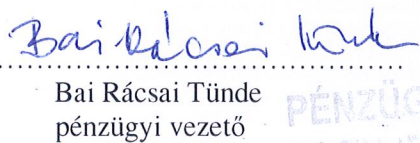 Bai Rácsai Tünde
Bai Rácsai Tünde
pénzügyi vezető
PÉNZÜG